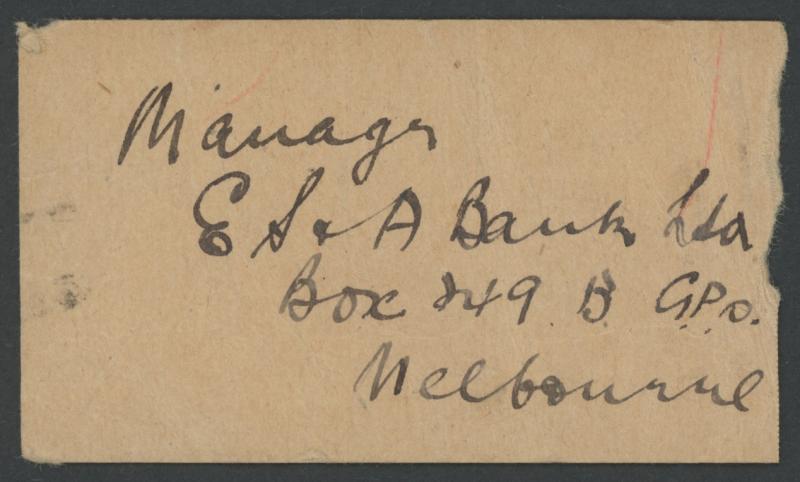 Manager
E S & A Bank Ltd
Box 249 B G.P.O.
Melbourne